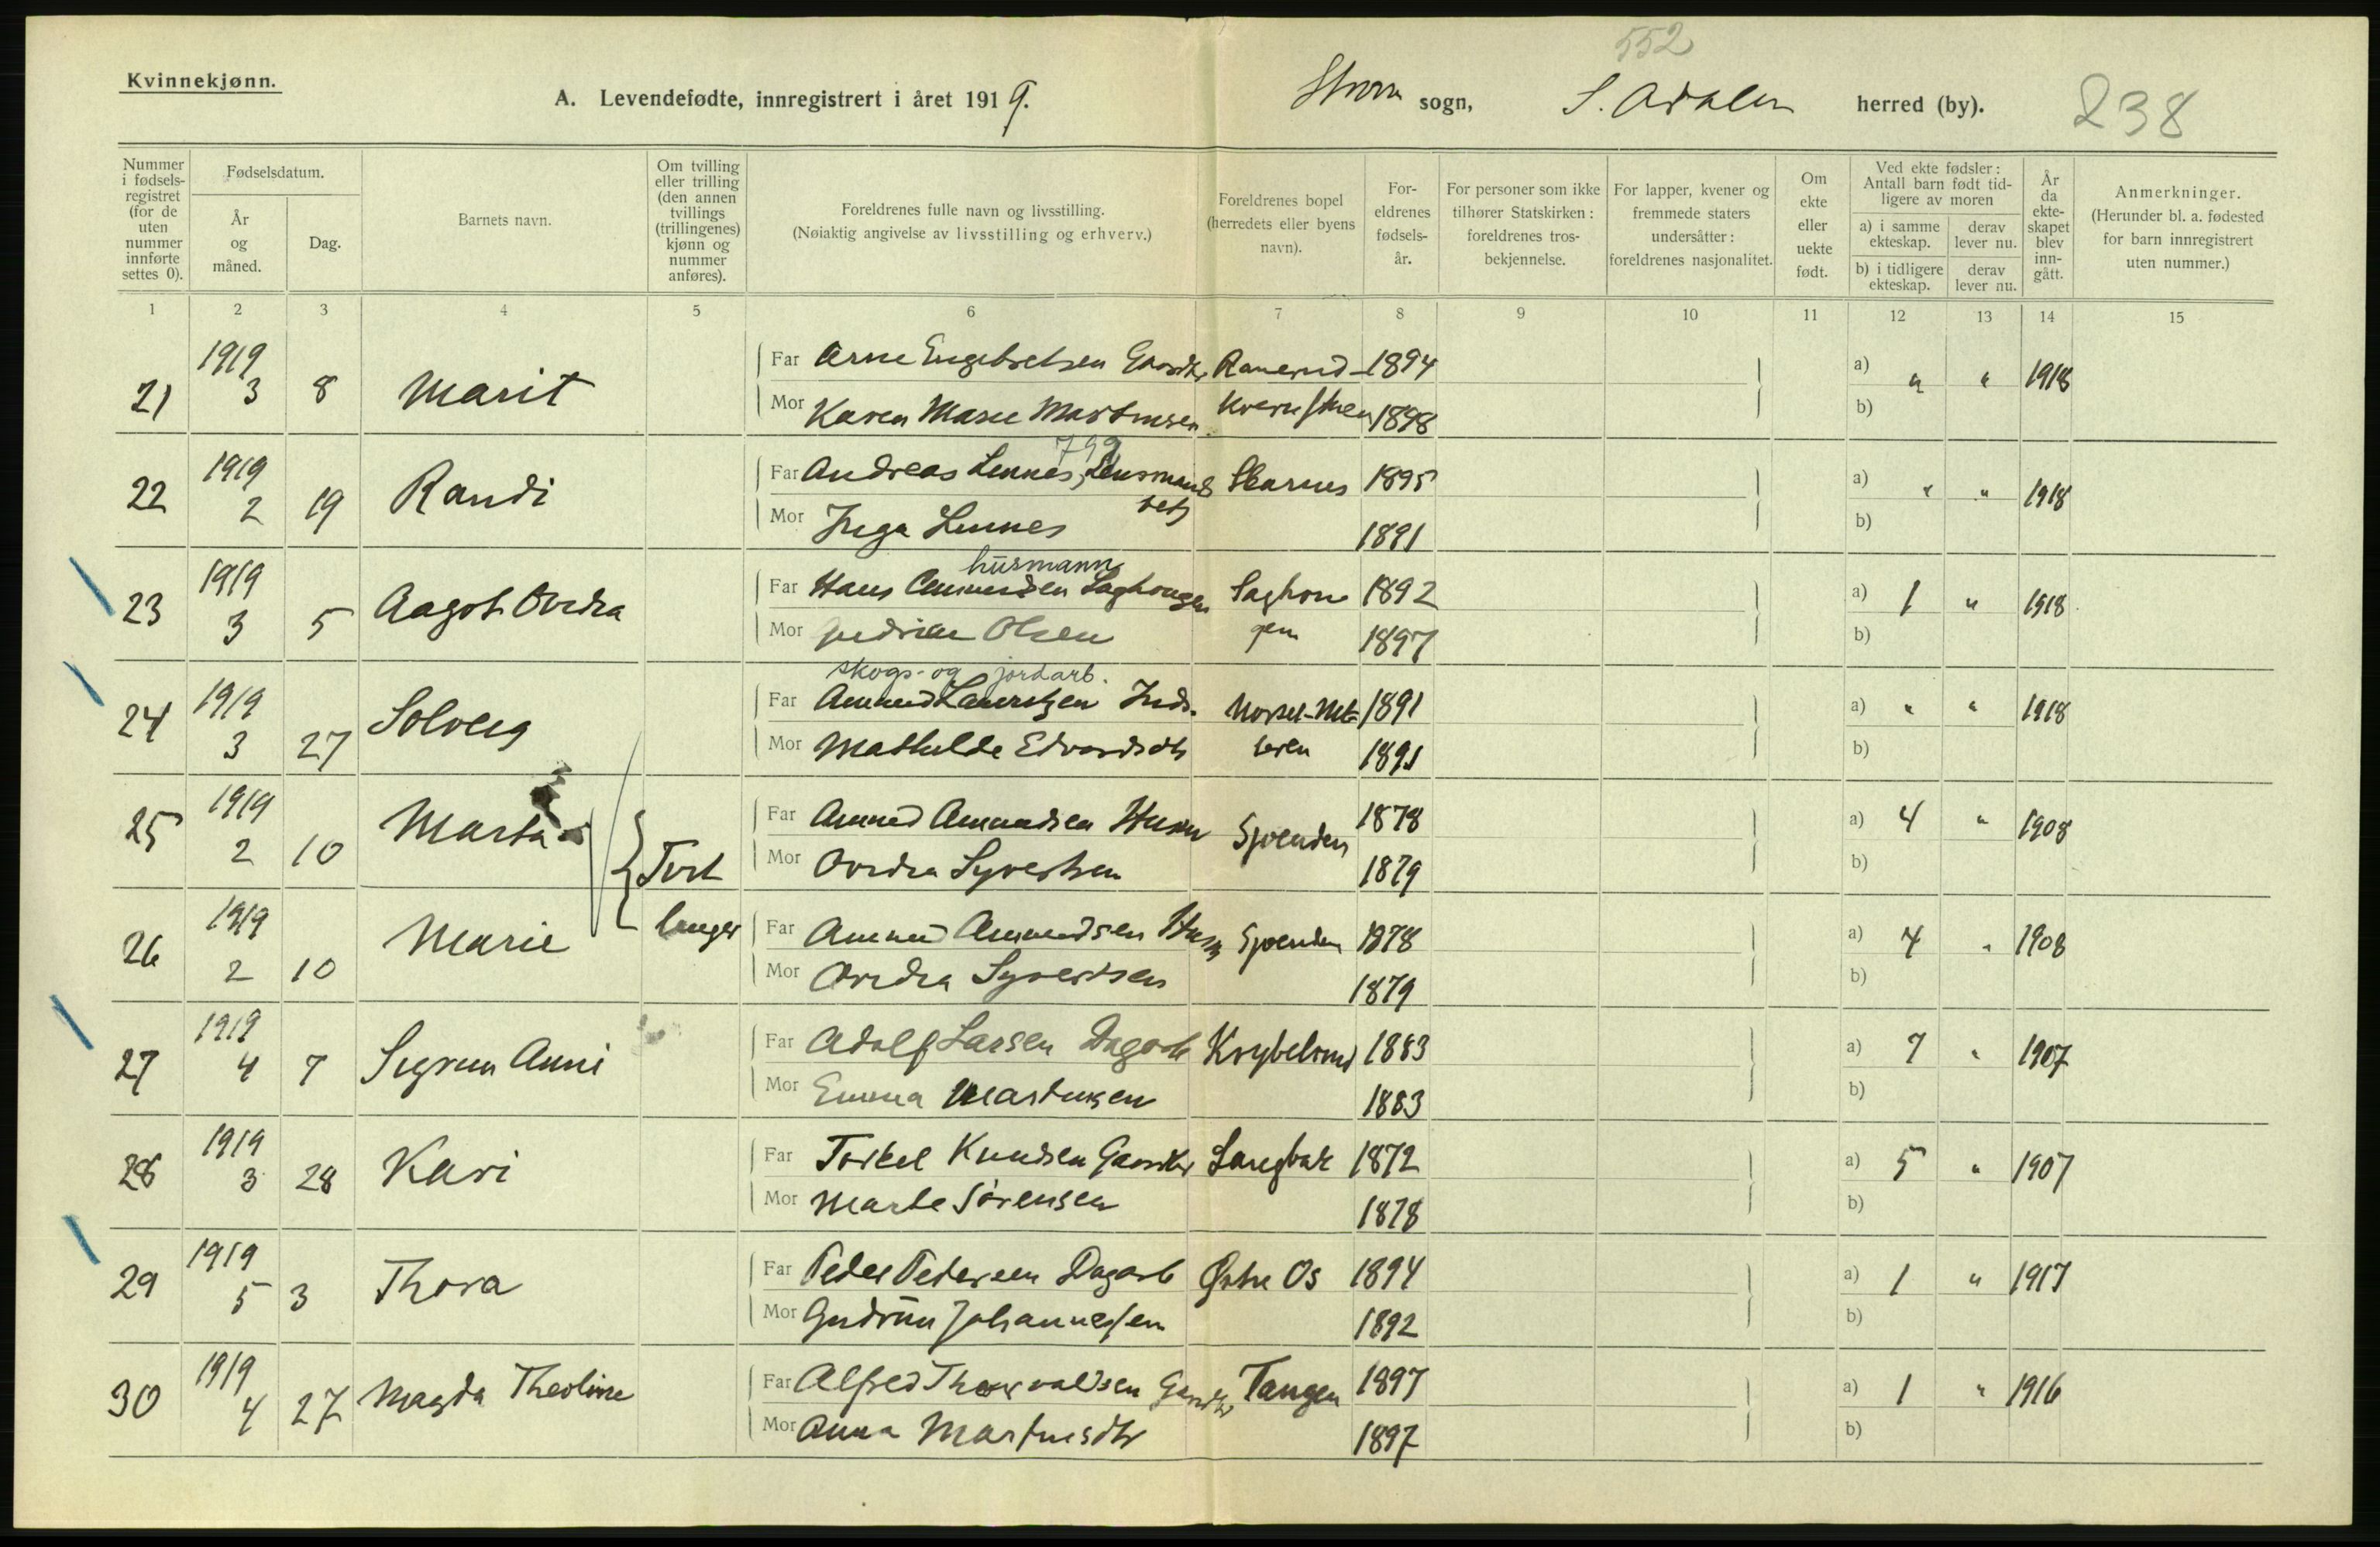 552
Kvinnekjønn.
A. Levendefødte, innregistrert i året 1919.
sogn, S. Aadalen herred (by).
238
Nummer i fødsels-registret (for de uten nummer innførte settes 0).
Fødselsdatum.
År og måned.
Dag.
Barnets navn.
Om tvilling eller trilling (den annen tvillings (trillingenes) kjønn og nummer anføres).
Foreldrenes fulle navn og livsstilling.
(Nøiaktig angivelse av livsstilling og erhverv.)
Foreldrenes bopel (herredets eller byens navn).
For-eldrenes fødsels-år.
For personer som ikke tilhører Statskirken: foreldrenes tros-bekjennelse.
For lapper, kvener og fremmede staters undersåtter: foreldrenes nasjonalitet.
Om ekte eller uekte født.
Ved ekte fødsler: Antall barn født tid-ligere av moren
a) i samme ekteskap.
derav lever nu.
b) i tidligere ekteskap.
derav lever nu.
År da ekte-skapet blev inn-gått.
Anmerkninger.
(Herunder bl. a. fødested for barn innregistrert uten nummer.)
1 2 3 4 5 6 7 8 9 10 11 12 13 14 15
21 1919 3 8 Marit
Far Arne Engebretsen Gaardbr Ramerud 1894 a) " " 1918
Mor Karen Marie Martinsen 1898 b)
799
22 1919 2 19 Randi
Far Andreas Lennes, Lensmands Skarnes 1895 a) " " 1918
betj
Mor Inga Lennes 1891 b)
husmann
23 1919 3 5 Aagot Ovidia
Far Hans Amundsen Saghaugen Saghau 1892 a) 1 " 1918
Mor Olsen gen 1897 b)
skogs- og jordarb.
24 1919 3 27 Solveig
Far Amund Lauritzen Inds. 1891 a) " " 1918
Mor Mathilde Edvardsdtr 1891 b)
25 1919 2 10 Marta
Far Amund Amundsen Husm Spenden 1878 a) 4 " 1908
Mor Ovidia Syvertsen 1879 b)
Tvil
linger
26 1919 2 10 Marie
Far Amund Amundsen Husm Spenden 1878 a) 4 " 1908
Mor Ovidia Syvertsen 1879 b)
27 1919 4 7 Sigrun Anni
Far Adolf Larsen Dagarb 1883 a) 7 " 1907
Mor Emma Martinsen 1883 b)
28 1919 3 28 Kari
Far Torkel Knudsen Gaardbr Langbak 1872 a) 5 " 1907
Mor Marte Sörensen 1878 b)
29 1919 5 3 Thora
Far Peder Pedersen Dagarb Østre Os 1894 a) 1 " 1917
Mor Gudrun Johannessen 1892 b)
30 1919 4 27 Magda Theoline
Far Alfred Thorvaldsen Gaardbr Tangen 1897 a) 1 " 1916
Mor Anna Martinsdtr 1897 b)